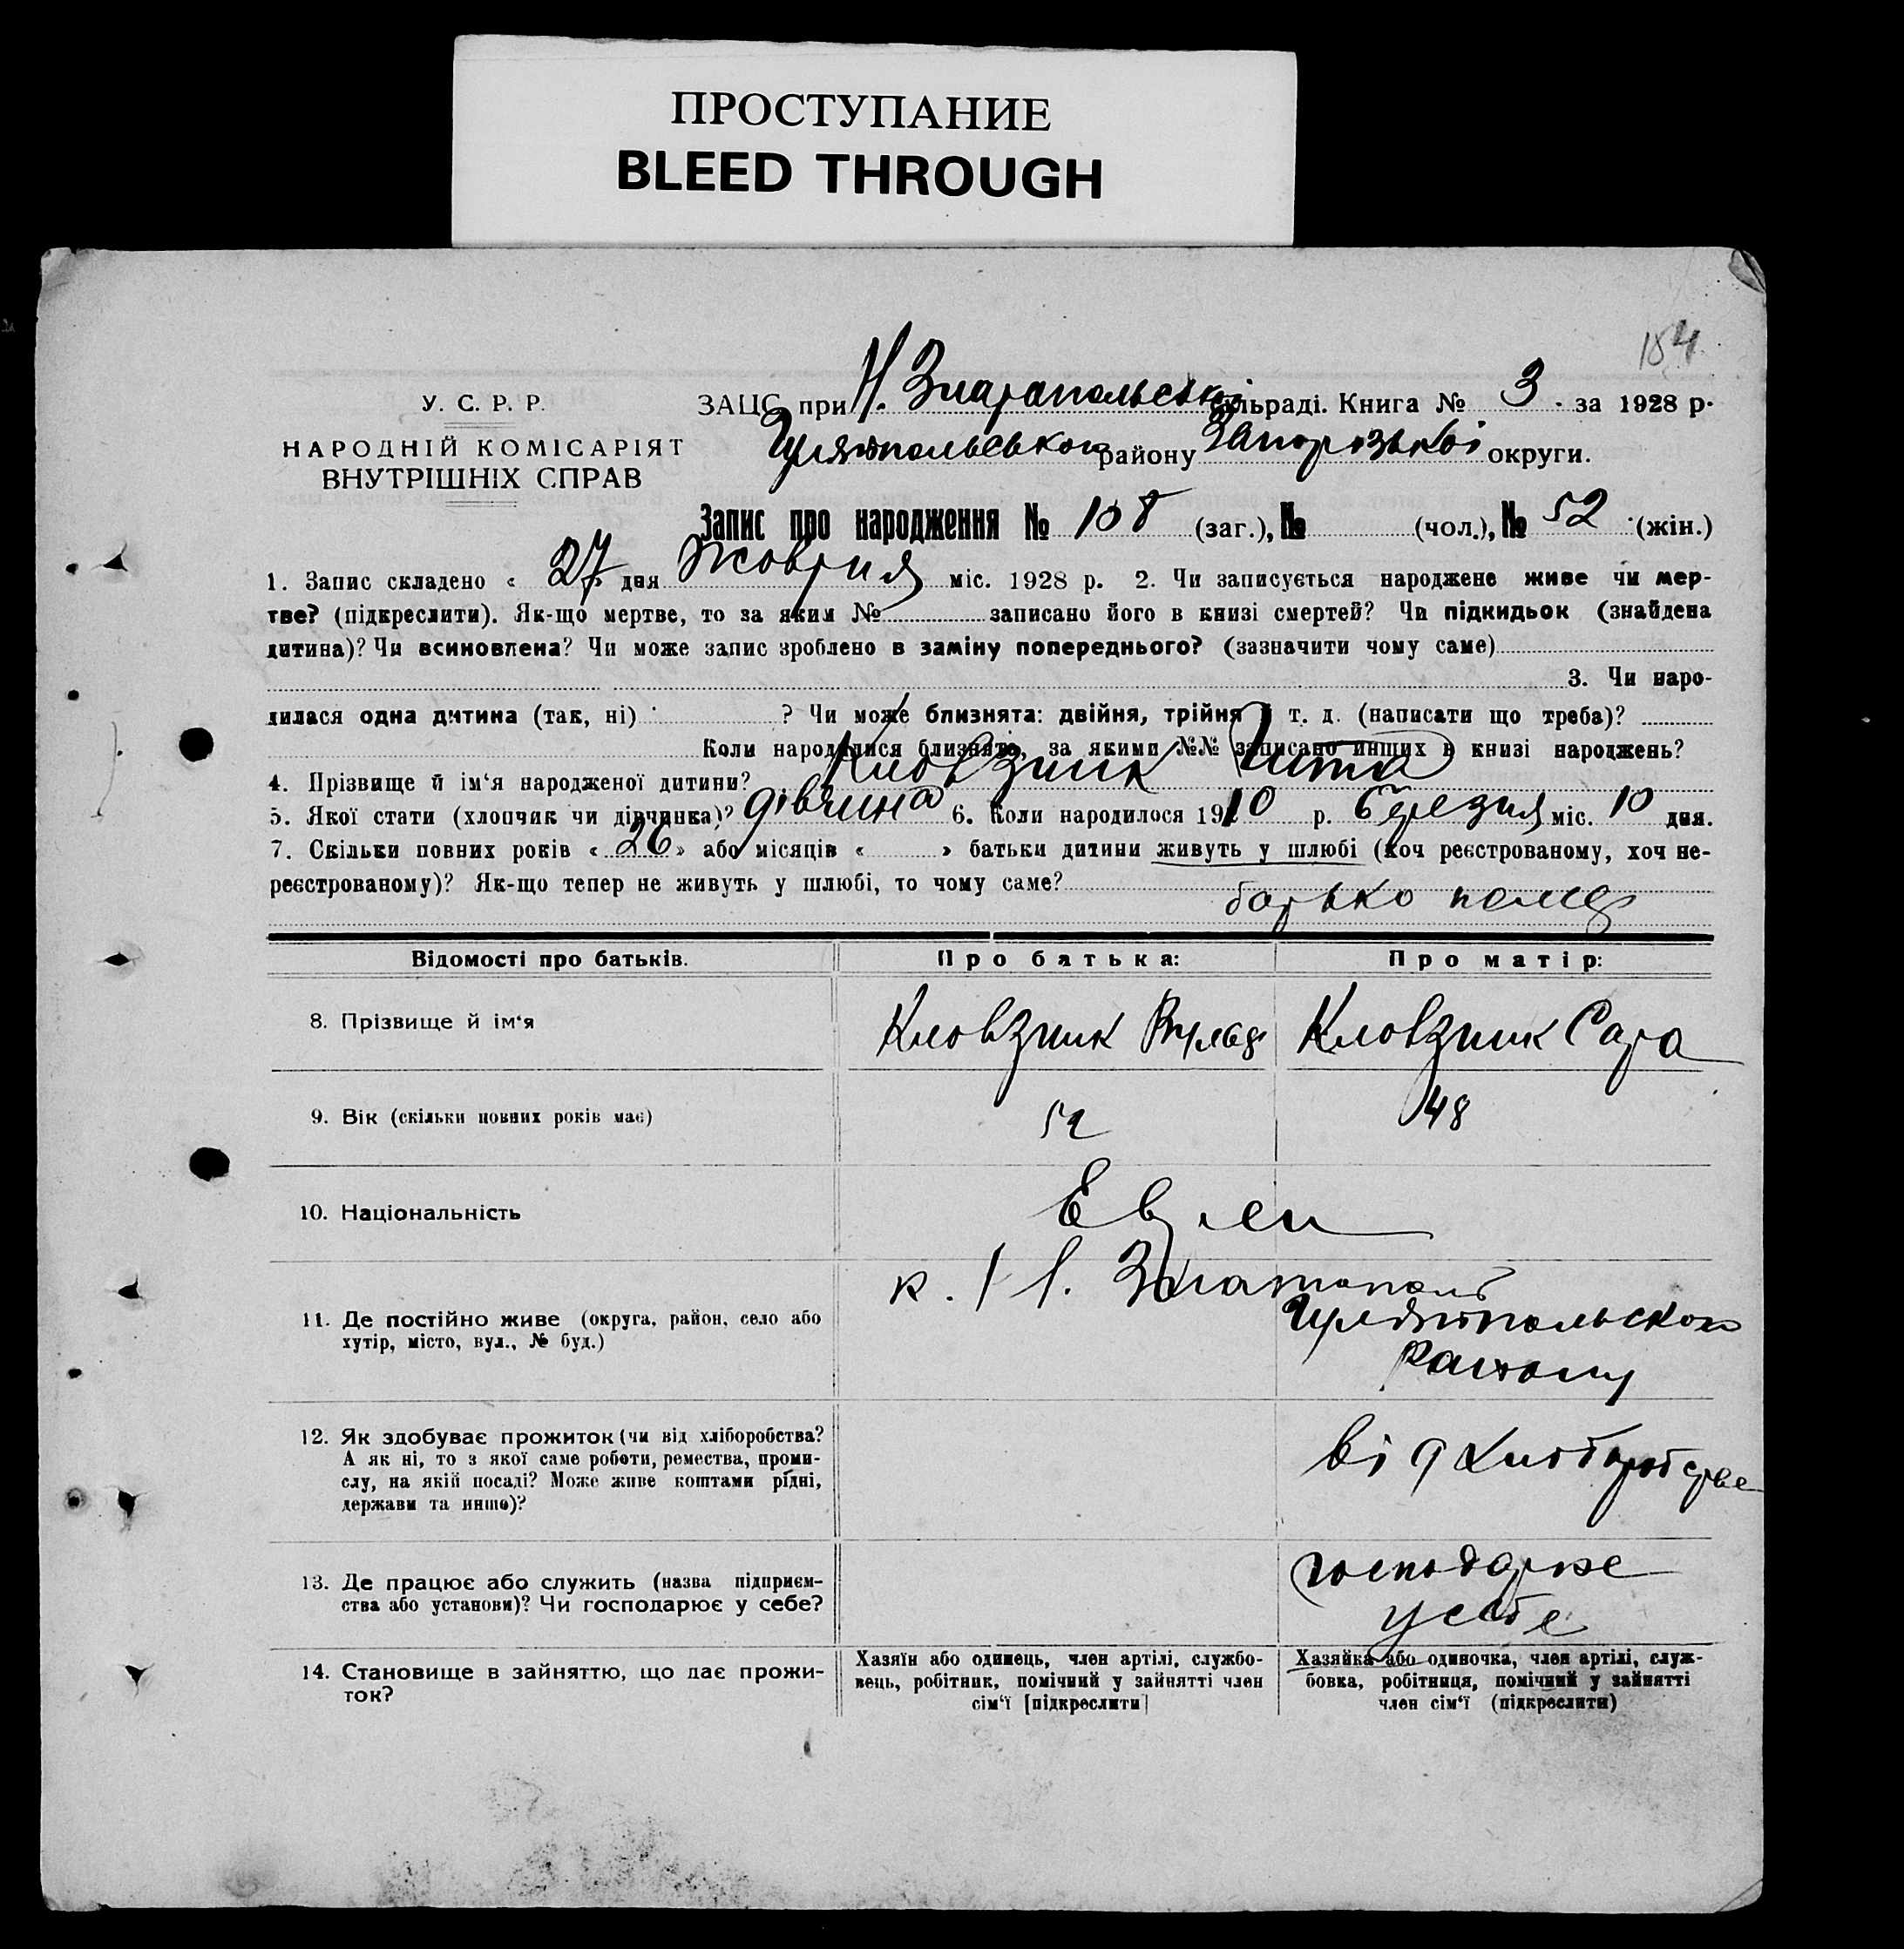 ПРОСТУПАНИЕ
BLEED THROUGH
154
У. С. Р. Р.
НАРОДНІЙ КОМІСАРІЯТ
ВНУТРІШНІХ СПРАВ
ЗАЦС при Н. Златапольські сільраді. Книга № 3 за 1928 р.
району Запорізької округи.
Запис про народження № 108 (заг.), № (чол.), № 52 (жін.)
1. Запис складено « 27 » дня Жовтня міс. 1928 р. 2. Чи записується народжене живе чи мер-
тве? (підкреслити). Як-що мертве, то за яким № записано його в книзі смертей? Чи підкидьок (знайдена
дитина)? Чи всиновлена? Чи може запис зроблено в заміну попереднього? (зазначити чому саме)
3. Чи наро-
дилася одна дитина (так, ні) ? Чи може близнята: двійня, трійня й т. д. (написати що треба)?
Коли народилися близнята, за якими №№ записано инших в книзі народжень?
4. Прізвище й ім‘я народженої дитини?
5. Якої стати (хлопчик чи дівчинка)? дівчина 6. Коли народилося 1910 р. березня міс. 10 дня.
7. Скільки повних років « 26 » або місяців « » батьки дитини живуть у шлюбі (хоч реєстрованому, хоч не-
реєстрованому)? Як-що тепер не живуть у шлюбі, то чому саме?
батько помер
Відомості про батьків. Про батька: Про матір:
8. Прізвище й ім‘я Сара
9. Вік (скільки повних років має) 52 48
10. Національність Евреи
11. Де постійно живе (округа, район, село або
хутір, місто, вул., № буд.)
к. Н. Златополь
району
12. Як здобуває прожиток (чи від хліборобства?
А як ні, то з якої саме роботи, ремества, проми-
слу, на якій посаді? Може живе коштами рідні,
держави та инше)?
від хліборобства
13. Де працює або служить (назва підприєм-
ства або установи)? Чи господарює у себе?
господарює
у себе
14. Становище в зайняттю, що дає прожи-
ток?
Хазяїн або одинець, член артілі, службо-
вець, робітник, помічний у зайнятті член
сім‘ї [підкреслити]
Хазяйка або одиночка, член артілі, служ-
бовка, робітниця, помічний у зайнятті
член сім‘ї (підкреслити)